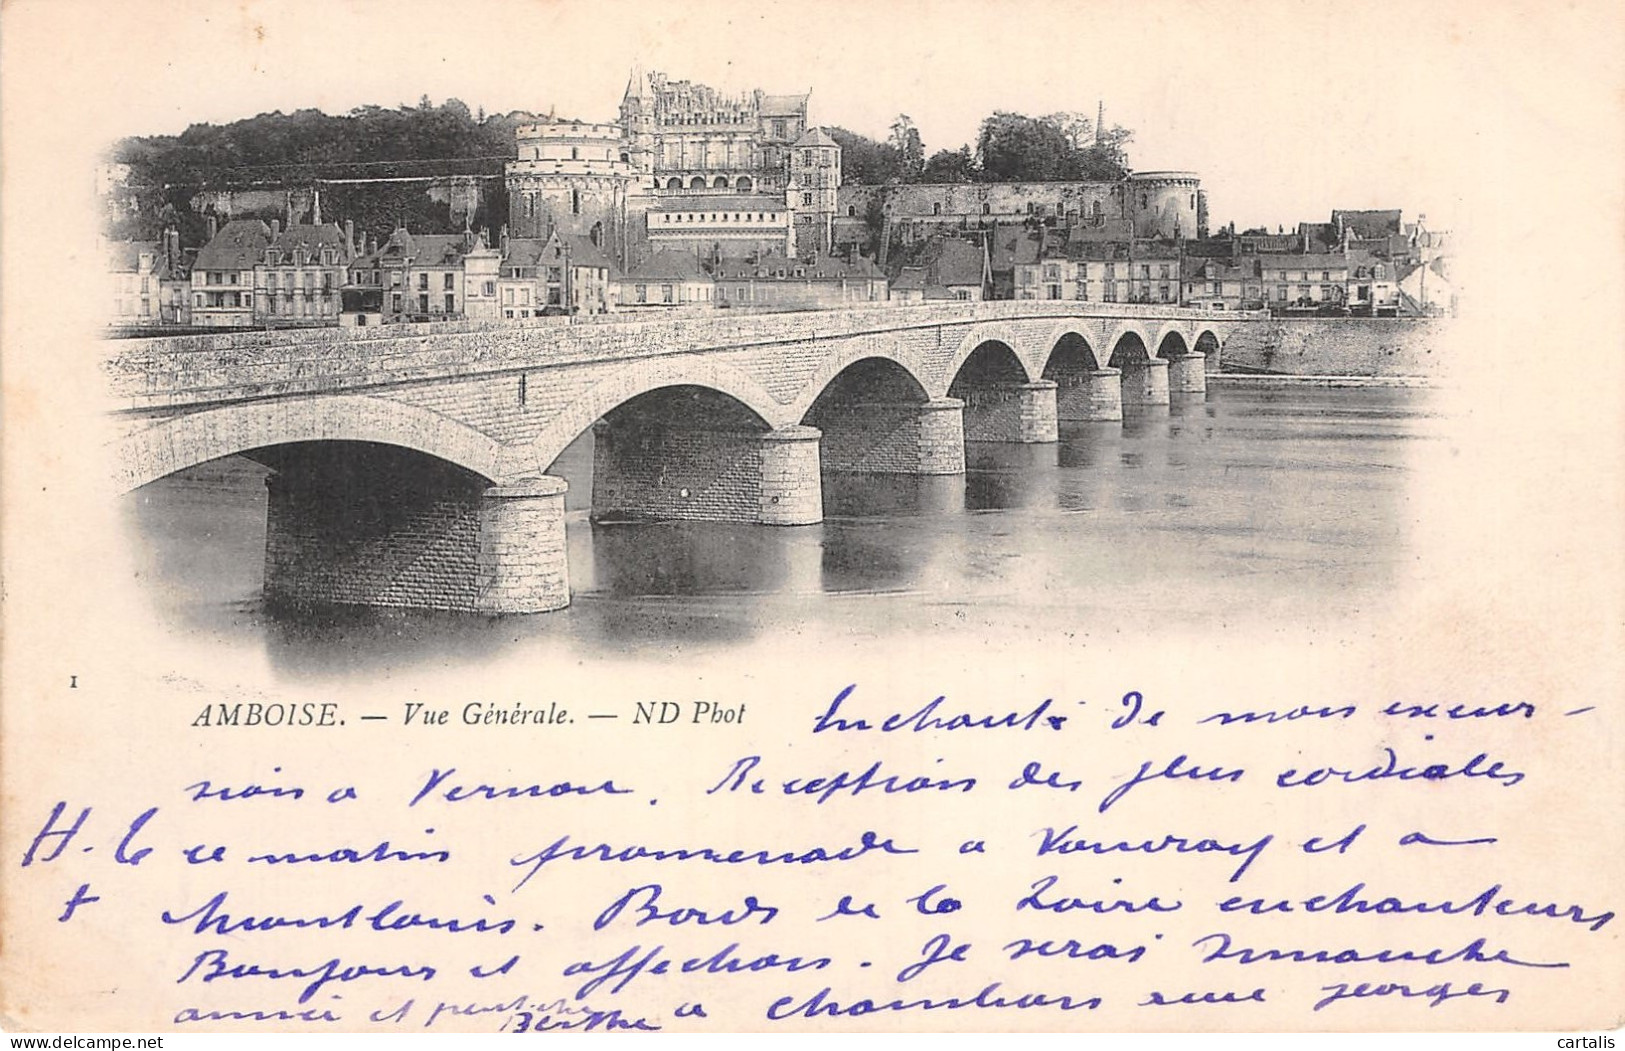 1
AMBOISE. — Vue Générale. — ND Phot
Enchanté de mon excur-
sion a Vernou. Reception des plus cordiales
H. G ce matin promenade a Vouvray et a
+ Montlouis. Bords de la Loire enchanteurs
Bonjour et affection. Je serai Dimanche
année et peut-être a Chambon avec Georges
Berthe
cartalis
delcampe.net